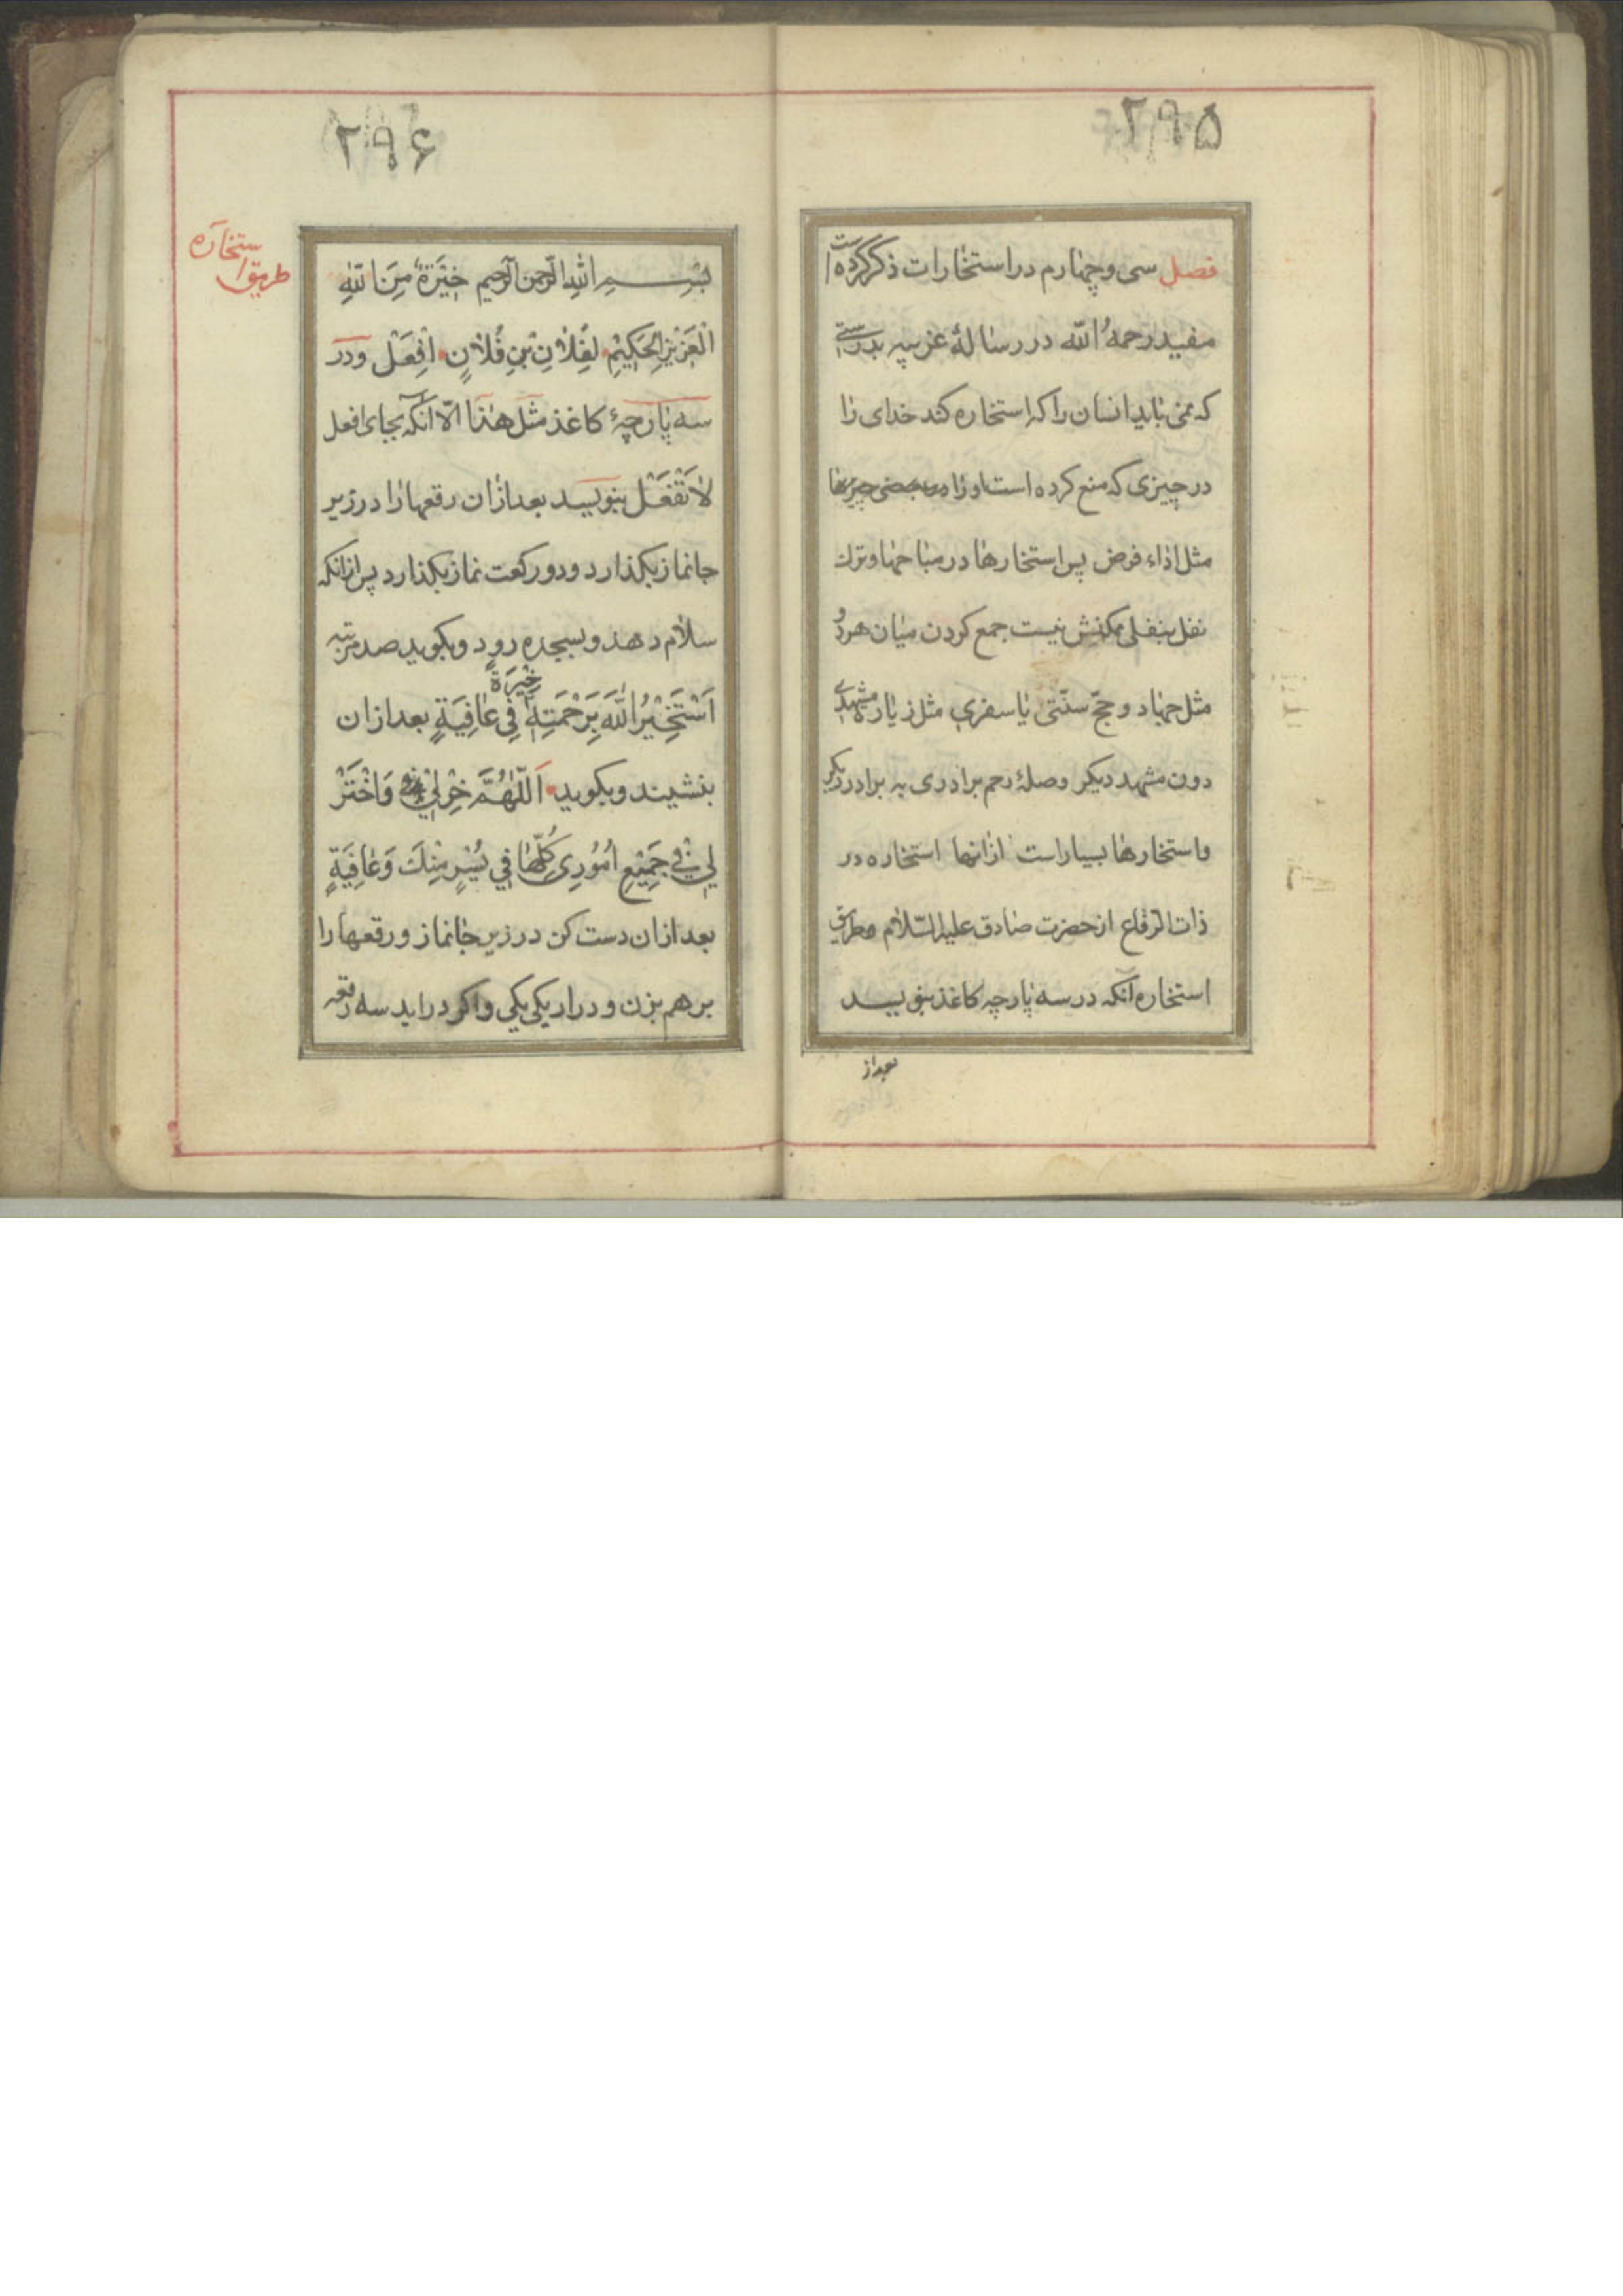 ۲۹۵
فصل سی و چهارم در استخارات ذکر کرده است
مفید رحمه الله در رسالهٔ عزیه بدرستی
که نمی باید انسان را که استخاره کند خدای را
در چیزی که منع کرده است او را در بعضی چیزها
مثل اداء فرض پس استخارها در مباحها و ترك
نفل بنفلی ممکنش نیست جمع کردن میان هر دُو
مثل جهاد و حجّ سنّتی یا سفری مثل زیارة مشهدی
دون مشهد دیکر وصلهٔ رحم برادری به برادر دیکر
واستخارها بسیار است ازانها استخاره در
ذات الرّقاع از حضرت صادق علیه السّلام و طریق
استخاره آنکه در سه پارچه کاغذ بنویسد
بعد از
۲۹۶
طریق استخاره
بِسْمِ اللهِ الرّحمنِ الرّحیم خِیَرَةٌ مِنَ اللهِ
الْعَزِیْزِ الْحَکِیْمِ لِفُلانِ بْنِ فُلانٍ اِفْعَلْ و در
سه پارچهٔ کاغذ مثل هذا الّا آنکه بجای افعل
لا تَفْعَلْ بنویسد بعد ازان رقعها را در زیر
جانماز بکذارد و دو رکعت نماز بکذارد پس ازانکه
سلام دهد و بسجده رود و بکوید صد مرتبه
اَسْتَخِیْرُ اللهَ بِرَحْمَتِهِ خِیَرَةً فِی عافِیَةٍ بعد ازان
بنشیند و بکوید اَللّهُمَّ خِرْلِیْ وَاخْتَرْ
لِی فِی جَمِیْعِ اُمُوْرِی کُلِّها فِی یُسْرٍ مِنْكَ وَعافِیَةٍ
بعد ازان دست کن در زیر جانماز و رقعها را
بر هم بزن و در ار یکی یکی و اکر در اید سه رقعه